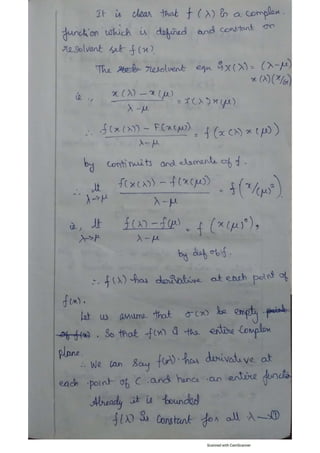 It is clear that f(λ) is a complex
function which is defined and constant on
resolvent set ρ(x)
The resolvent eqn is x(λ) = (λ-μ)
x(λ)(x/μ)
ie., x(λ) - x(μ) / λ-μ = x(λ)x(μ)
∴ f(x(λ)) - F(x(μ)) / λ-μ = f(x(λ)x(μ))
by continuits and elements of f.
∴ lt λ→μ f(x(λ)) - f(x(μ)) / λ-μ = f(x/(μ)²)
ie, lt λ→μ f(λ) - f(μ) / λ-μ = f(x(μ)²),
by def of f.
∴ f(λ) has derivative at each point of
ρ(x).
Let us assume that σ(x) be empty point
of f(x). So that f(x) is the entire Complex
plane.
∴ We can say f(x) has derivative at
each point of C and hence an entire functio
Already it is bounded
f(λ) is Constant for all λ →①
Scanned with CamScanner